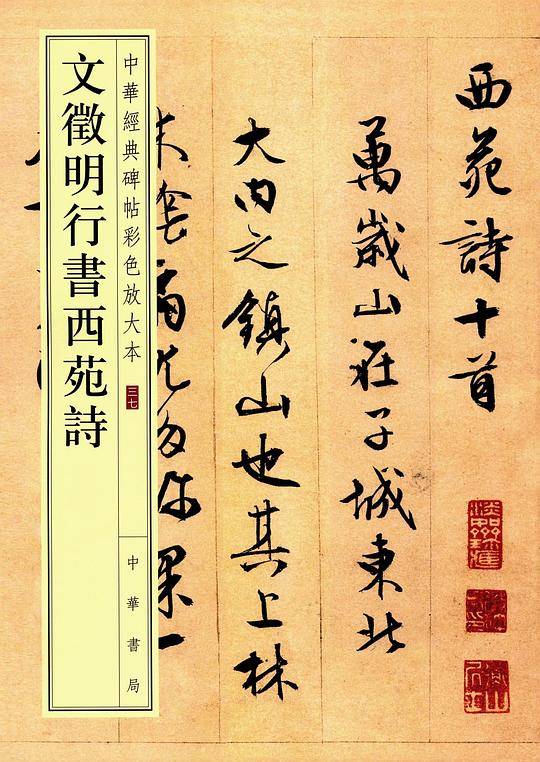 中華經典碑帖彩色放大本
三七
文徵明行書西苑詩
中華書局
西苑詩十首
萬歲山在子城東北
大内之鎮山也其上林
木陰翳尤多珎果一